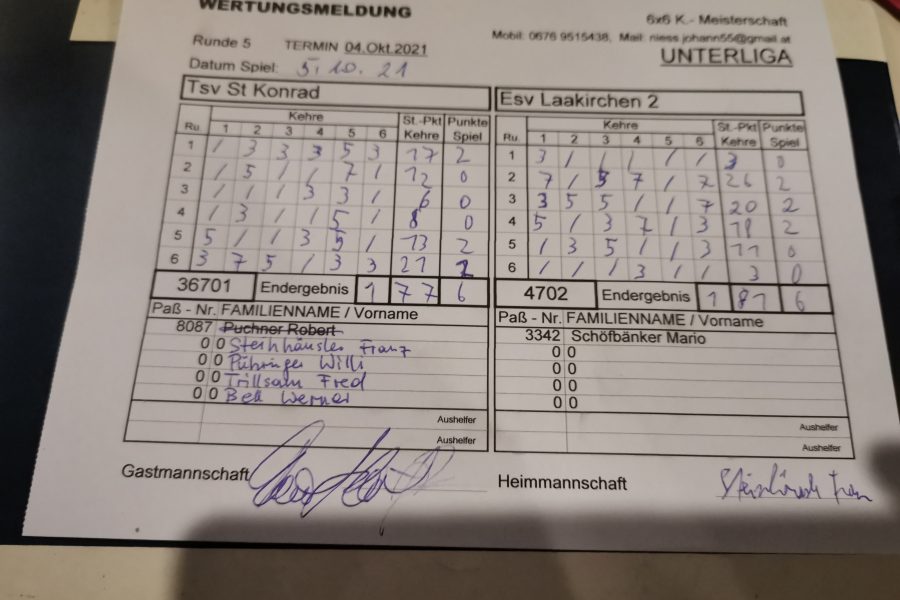 WERTUNGSMELDUNG
6x6 K.- Meisterschaft
Runde 5 TERMIN 04.Okt.2021
Mobil: 0676 9515438, Mail: niess.johann55@gmail.at
Datum Spiel: 5.10.21
UNTERLIGA
Tsv St Konrad
Kehre St.-Pkt Punkte
Ru. 1 2 3 4 5 6 Kehre Spiel
1 / 3 3 3 5 3 17 2
2 / 5 / / 7 / 12 0
3 / / / 3 3 / 6 0
4 / 3 / / 5 / 8 0
5 5 / / 3 5 / 13 2
6 3 7 5 / 3 3 21 2
36701 Endergebnis 1 77 6
Paß - Nr. FAMILIENNAME / Vorname
8087 Puchner Robert
0 0 Steinhäusler Franz
0 0 Pühringer Willi
0 0 Trillsam Fred
0 0 Werner
Aushelfer
Aushelfer
Gastmannschaft
Esv Laakirchen 2
Kehre St.-Pkt Punkte
Ru. 1 2 3 4 5 6 Kehre Spiel
1 3 / / / / / 3 0
2 7 / 5 7 / 7 26 2
3 3 5 5 / / 7 20 2
4 5 / 3 7 / 3 18 2
5 / 3 5 / / 3 11 0
6 / / / 3 / / 3 0
4702 Endergebnis 1 81 6
Paß - Nr. FAMILIENNAME / Vorname
3342 Schöfbänker Mario
0 0
0 0
0 0
0 0
Aushelfer
Aushelfer
Heimmannschaft